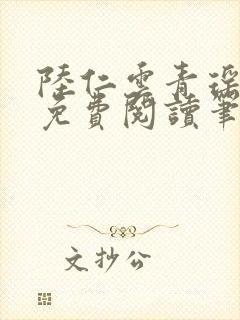 陸仁雲青瑤
免費閱讀筆
文抄公